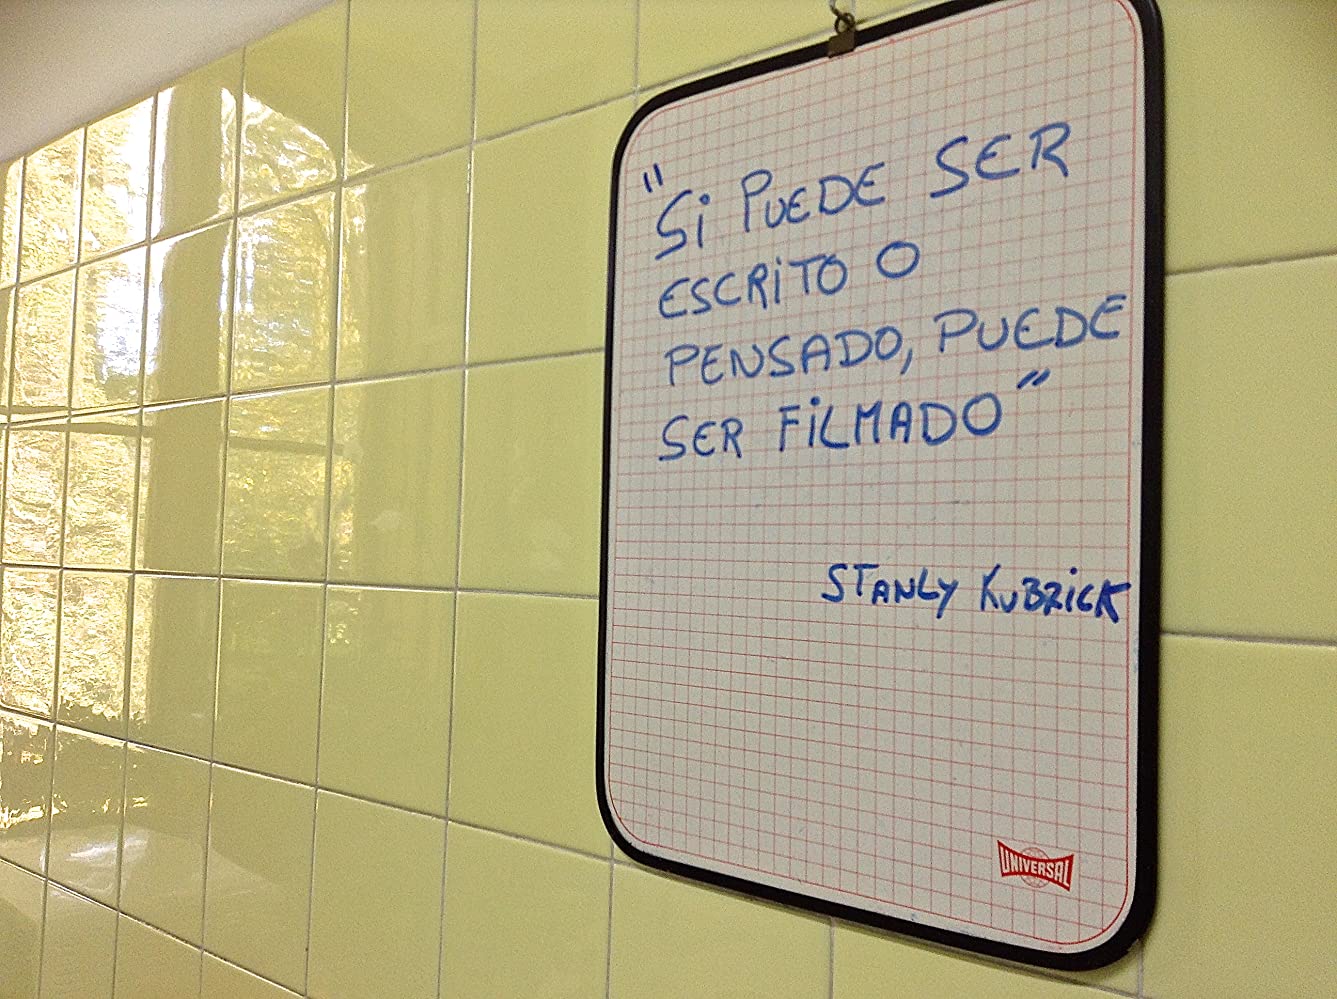 "Si PUEDE SER
ESCRiTO O
PENSADO, PUEDE
SER FiLMADO"
STANLY KUBRiCK
UNIVERSAL